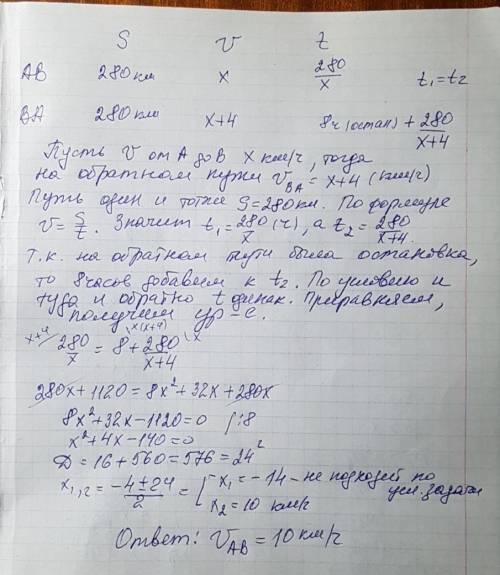 S v t
AB 280 км x 280/x t₁=t₂
BA 280 км x+4 8ч(остан)+280/(x+4)
Пусть v от A до B x км/ч, тогда
на обратном пути v_BA = x+4 (км/ч)
Путь один и тоже S=280км. По формуле
v=S/t. Значит t₁=280/x (ч), а t₂=280/(x+4).
Т.к. на обратном пути была остановка,
то 8часов добавим к t₂. По условию и
туда и обратно t одинак. Приравняем,
получим ур-е.
x+4/ 280/x = 8 /x(x+4) + 280/(x+4) /x
280x+1120=8x²+32x+280x
8x²+32x-1120=0 /:8
x²+4x-140=0
D=16+560=576=24²
x₁,₂=(-4±24)/2=[x₁=-14-не подходит по усл. задачи
x₂=10 км/ч
Ответ: v_AB=10км/ч